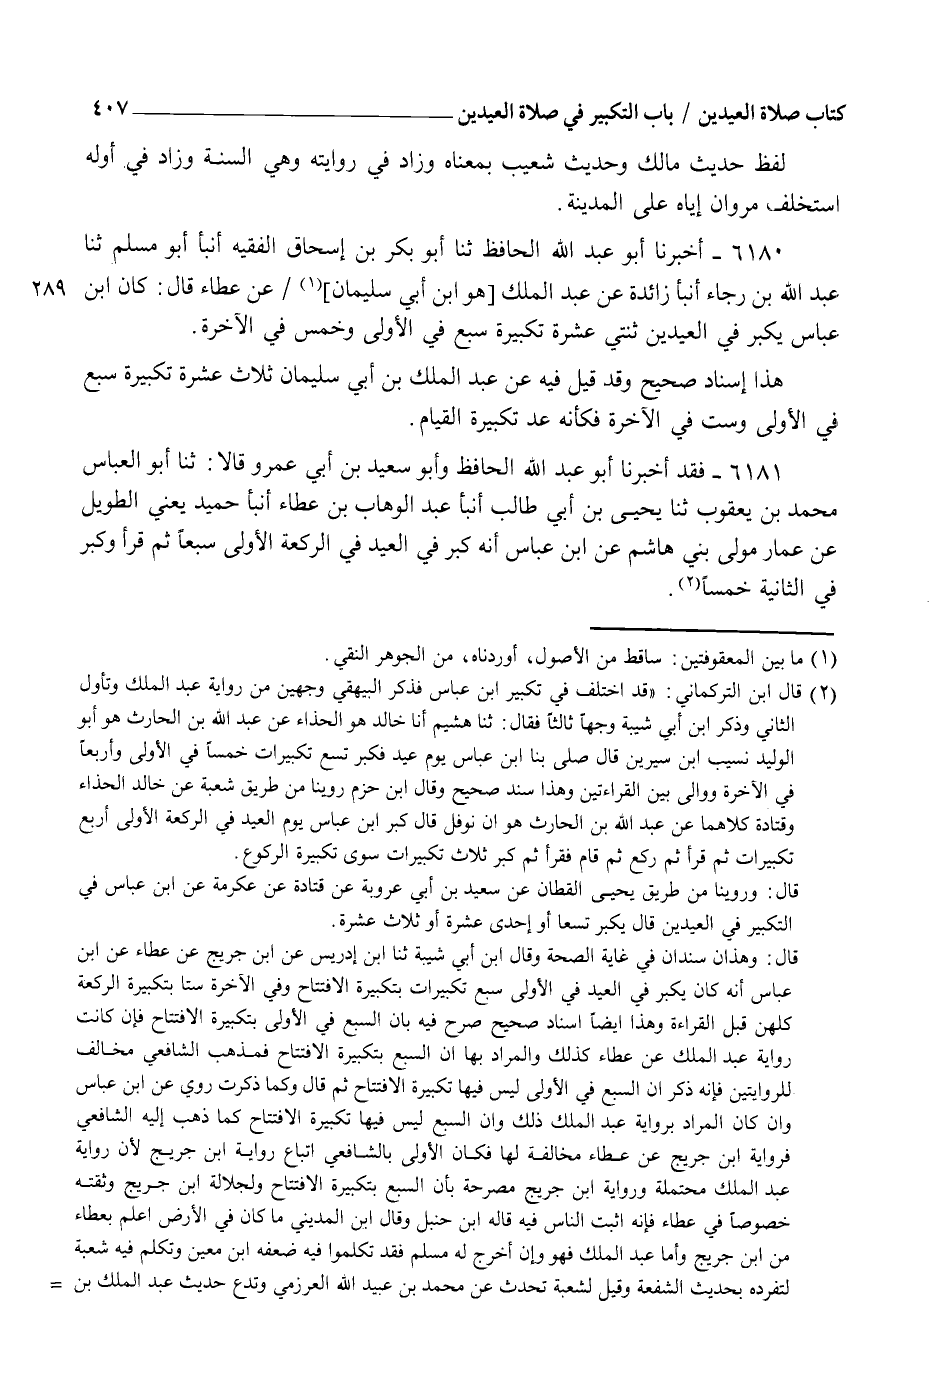 كتاب صلاة العيدين / باب التكبير في صلاة العيدين ٤٠٧
لفظ حديث مالك وحديث شعيب بمعناه وزاد في روايته وهي السنة وزاد في أوله
استخلف مروان إياه على المدينة.
٦١٨٠ ـ أخبرنا أبو عبد الله الحافظ ثنا أبو بكر بن إسحاق الفقيه أنبأ أبو مسلم ثنا
عبد الله بن رجاء أنبأ زائدة عن عبد الملك [هو ابن أبي سليمان](١) / عن عطاء قال: كان ابن ٢٨٩
عباس يكبر في العيدين ثنتي عشرة تكبيرة سبع في الأولى وخمس في الآخرة.
هذا إسناد صحيح وقد قيل فيه عن عبد الملك بن أبي سليمان ثلاث عشرة تكبيرة سبع
في الأولى وست في الآخرة فكأنه عد تكبيرة القيام.
٦١٨١ ـ فقد أخبرنا أبو عبد الله الحافظ وأبو سعيد بن أبي عمرو قالا: ثنا أبو العباس
محمد بن يعقوب ثنا يحيى بن أبي طالب أنبأ عبد الوهاب بن عطاء أنبأ حميد يعني الطويل
عن عمار مولى بني هاشم عن ابن عباس أنه كبر في العيد في الركعة الأولى سبعاً ثم قرأ وكبر
في الثانية خمساً(٢).
(١) ما بين المعقوفتين: ساقط من الأصول، أوردناه، من الجوهر النقي.
(٢) قال ابن التركماني: «قد اختلف في تكبير ابن عباس فذكر البيهقي وجهين من رواية عبد الملك وتأول
الثاني وذكر ابن أبي شيبة وجهاً ثالثاً فقال: ثنا هشيم أنا خالد هو الحذاء عن عبد الله بن الحارث هو أبو
الوليد نسيب ابن سيرين قال صلى بنا ابن عباس يوم عيد فكبر تسع تكبيرات خمساً في الأولى وأربعاً
في الآخرة ووالى بين القراءتين وهذا سند صحيح وقال ابن حزم روينا من طريق شعبة عن خالد الحذاء
وقتادة كلاهما عن عبد الله بن الحارث هو ان نوفل قال كبر ابن عباس يوم العيد في الركعة الأولى أربع
تكبيرات ثم قرأ ثم ركع ثم قام فقرأ ثم كبر ثلاث تكبيرات سوى تكبيرة الركوع.
قال: وروينا من طريق يحيى القطان عن سعيد بن أبي عروبة عن قتادة عن عكرمة عن ابن عباس في
التكبير في العيدين قال يكبر تسعا أو إحدى عشرة أو ثلاث عشرة.
قال: وهذان سندان في غاية الصحة وقال ابن أبي شيبة ثنا ابن إدريس عن ابن جريج عن عطاء عن ابن
عباس أنه كان يكبر في العيد في الأولى سبع تكبيرات بتكبيرة الافتتاح وفي الآخرة ستا بتكبيرة الركعة
كلهن قبل القراءة وهذا ايضاً اسناد صحيح صرح فيه بان السبع في الأولى بتكبيرة الافتتاح فإن كانت
رواية عبد الملك عن عطاء كذلك والمراد بها ان السبع بتكبيرة الافتتاح فمذهب الشافعي مخالف
للروايتين فإنه ذكر ان السبع في الأولى ليس فيها تكبيرة الافتتاح ثم قال وكما ذكرت روي عن ابن عباس
وان كان المراد برواية عبد الملك ذلك وان السبع ليس فيها تكبيرة الافتتاح كما ذهب إليه الشافعي
فرواية ابن جريج عن عطاء مخالفة لها فكان الأولى بالشافعي اتباع رواية ابن جريج لأن رواية
عبد الملك محتملة ورواية ابن جريج مصرحة بأن السبع بتكبيرة الافتتاح ولجلالة ابن جريج وثقته
خصوصاً في عطاء فإنه اثبت الناس فيه قاله ابن حنبل وقال ابن المديني ما كان في الأرض اعلم بعطاء
من ابن جريج وأما عبد الملك فهو وإن أخرج له مسلم فقد تكلموا فيه ضعفه ابن معين وتكلم فيه شعبة
لتفرده بحديث الشفعة وقيل لشعبة تحدث عن محمد بن عبيد الله العرزمي وتدع حديث عبد الملك بن =